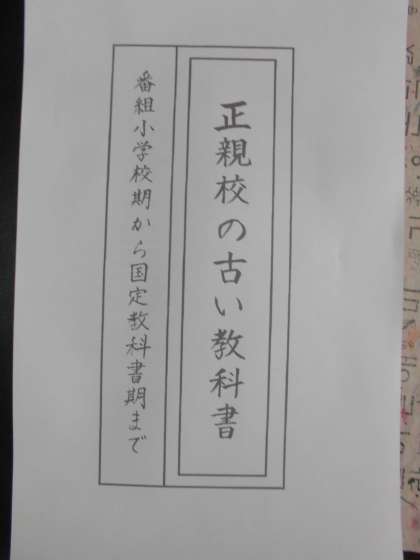 正親校の古い教科書
番組小学校期から国定教科書期まで